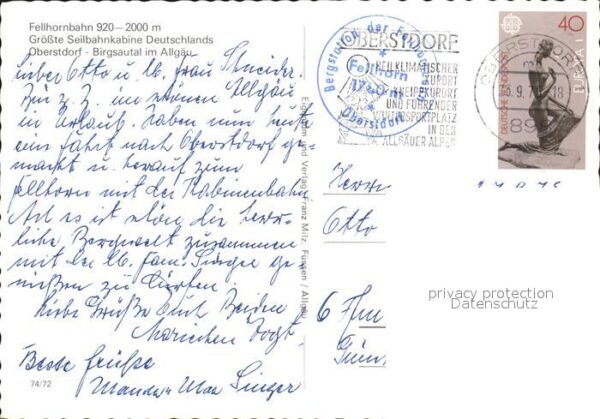 Fellhornbahn 920—2000 m
Größte Seilbahnkabine Deutschlands
Oberstdorf - Birgsautal im Allgäu
Lieber Otto u. lb. Frau Schneider.
Bin z. Z. im schönen Allgäu
in Urlaub. Haben nun heute
eine Fahrt nach Oberstdorf ge-
macht u. herauf zum
Fellhorn mit der Kabinenbahn
Ach es ist schön die herr-
liche Bergwelt zusammen
mit der lb. Fam. Singer ge
nießen zu dürfen.
Liebe Grüße Euch Beiden
Mariechen Vogt.
Beste Grüße
Singer
74/72
Eigentum und Verlag Franz Milz, Füssen / Allgäu
Bergstation der Fellhornbahn
Fellhorn
Oberstdorf
OBERSTDORF
HEILKLIMATISCHER
KURORT
KNEIPPKURORT
UND FÜHRENDER
WINTERSPORTPLATZ
IN DEN
ALLGÄUER ALPEN
OBERSTDORF
89
40
EUROPA
DEUTSCHE BUNDESPOST
Herrn
Otto
6
privacy protection
Datenschutz